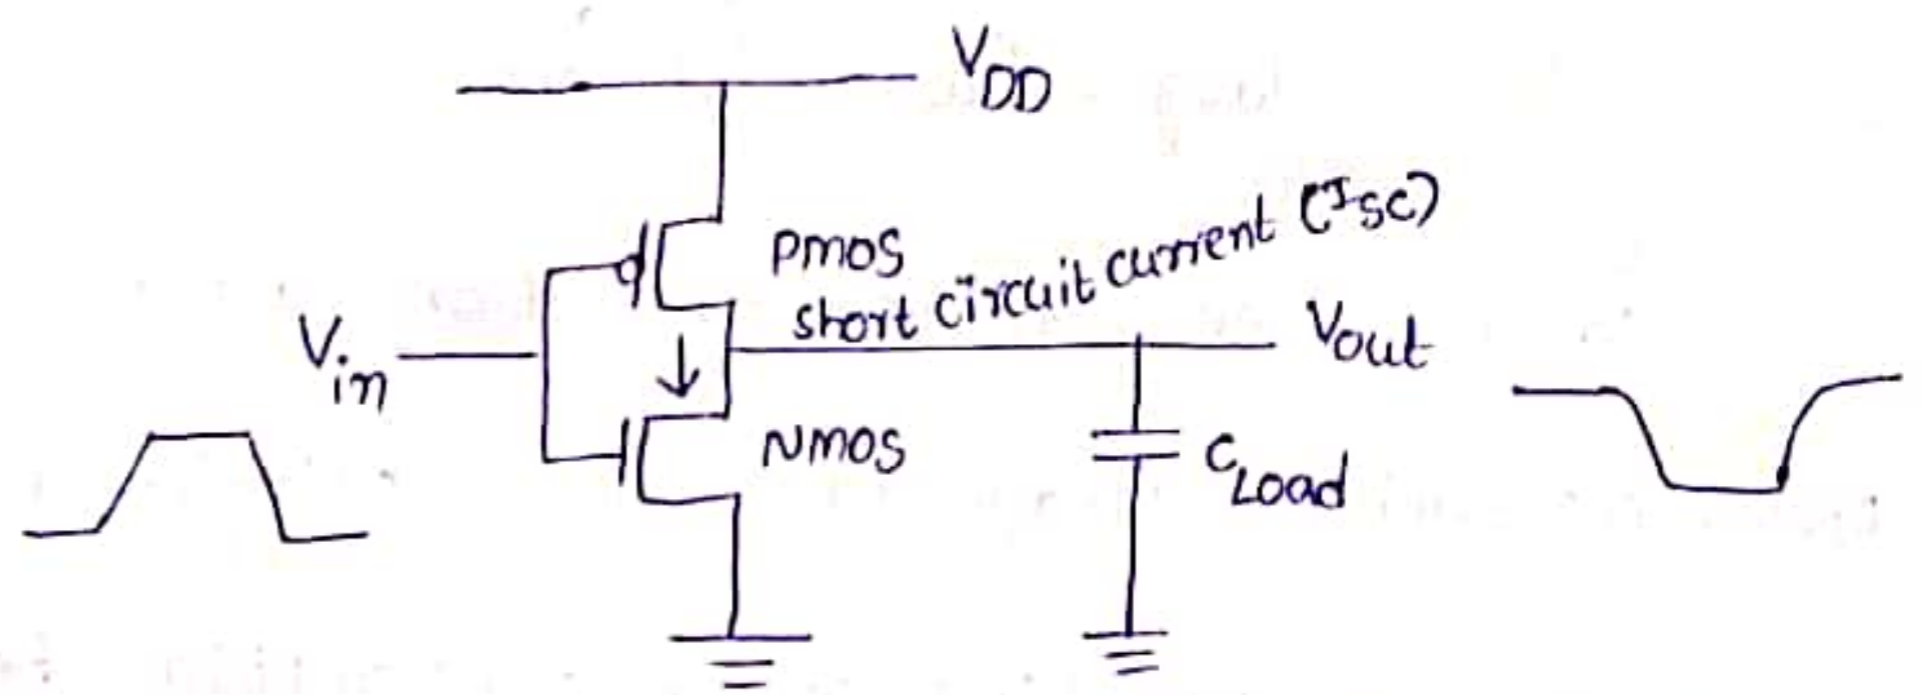 VDD
PMOS
short circuit current (Isc)
Vin
Vout
NMOS
CLoad